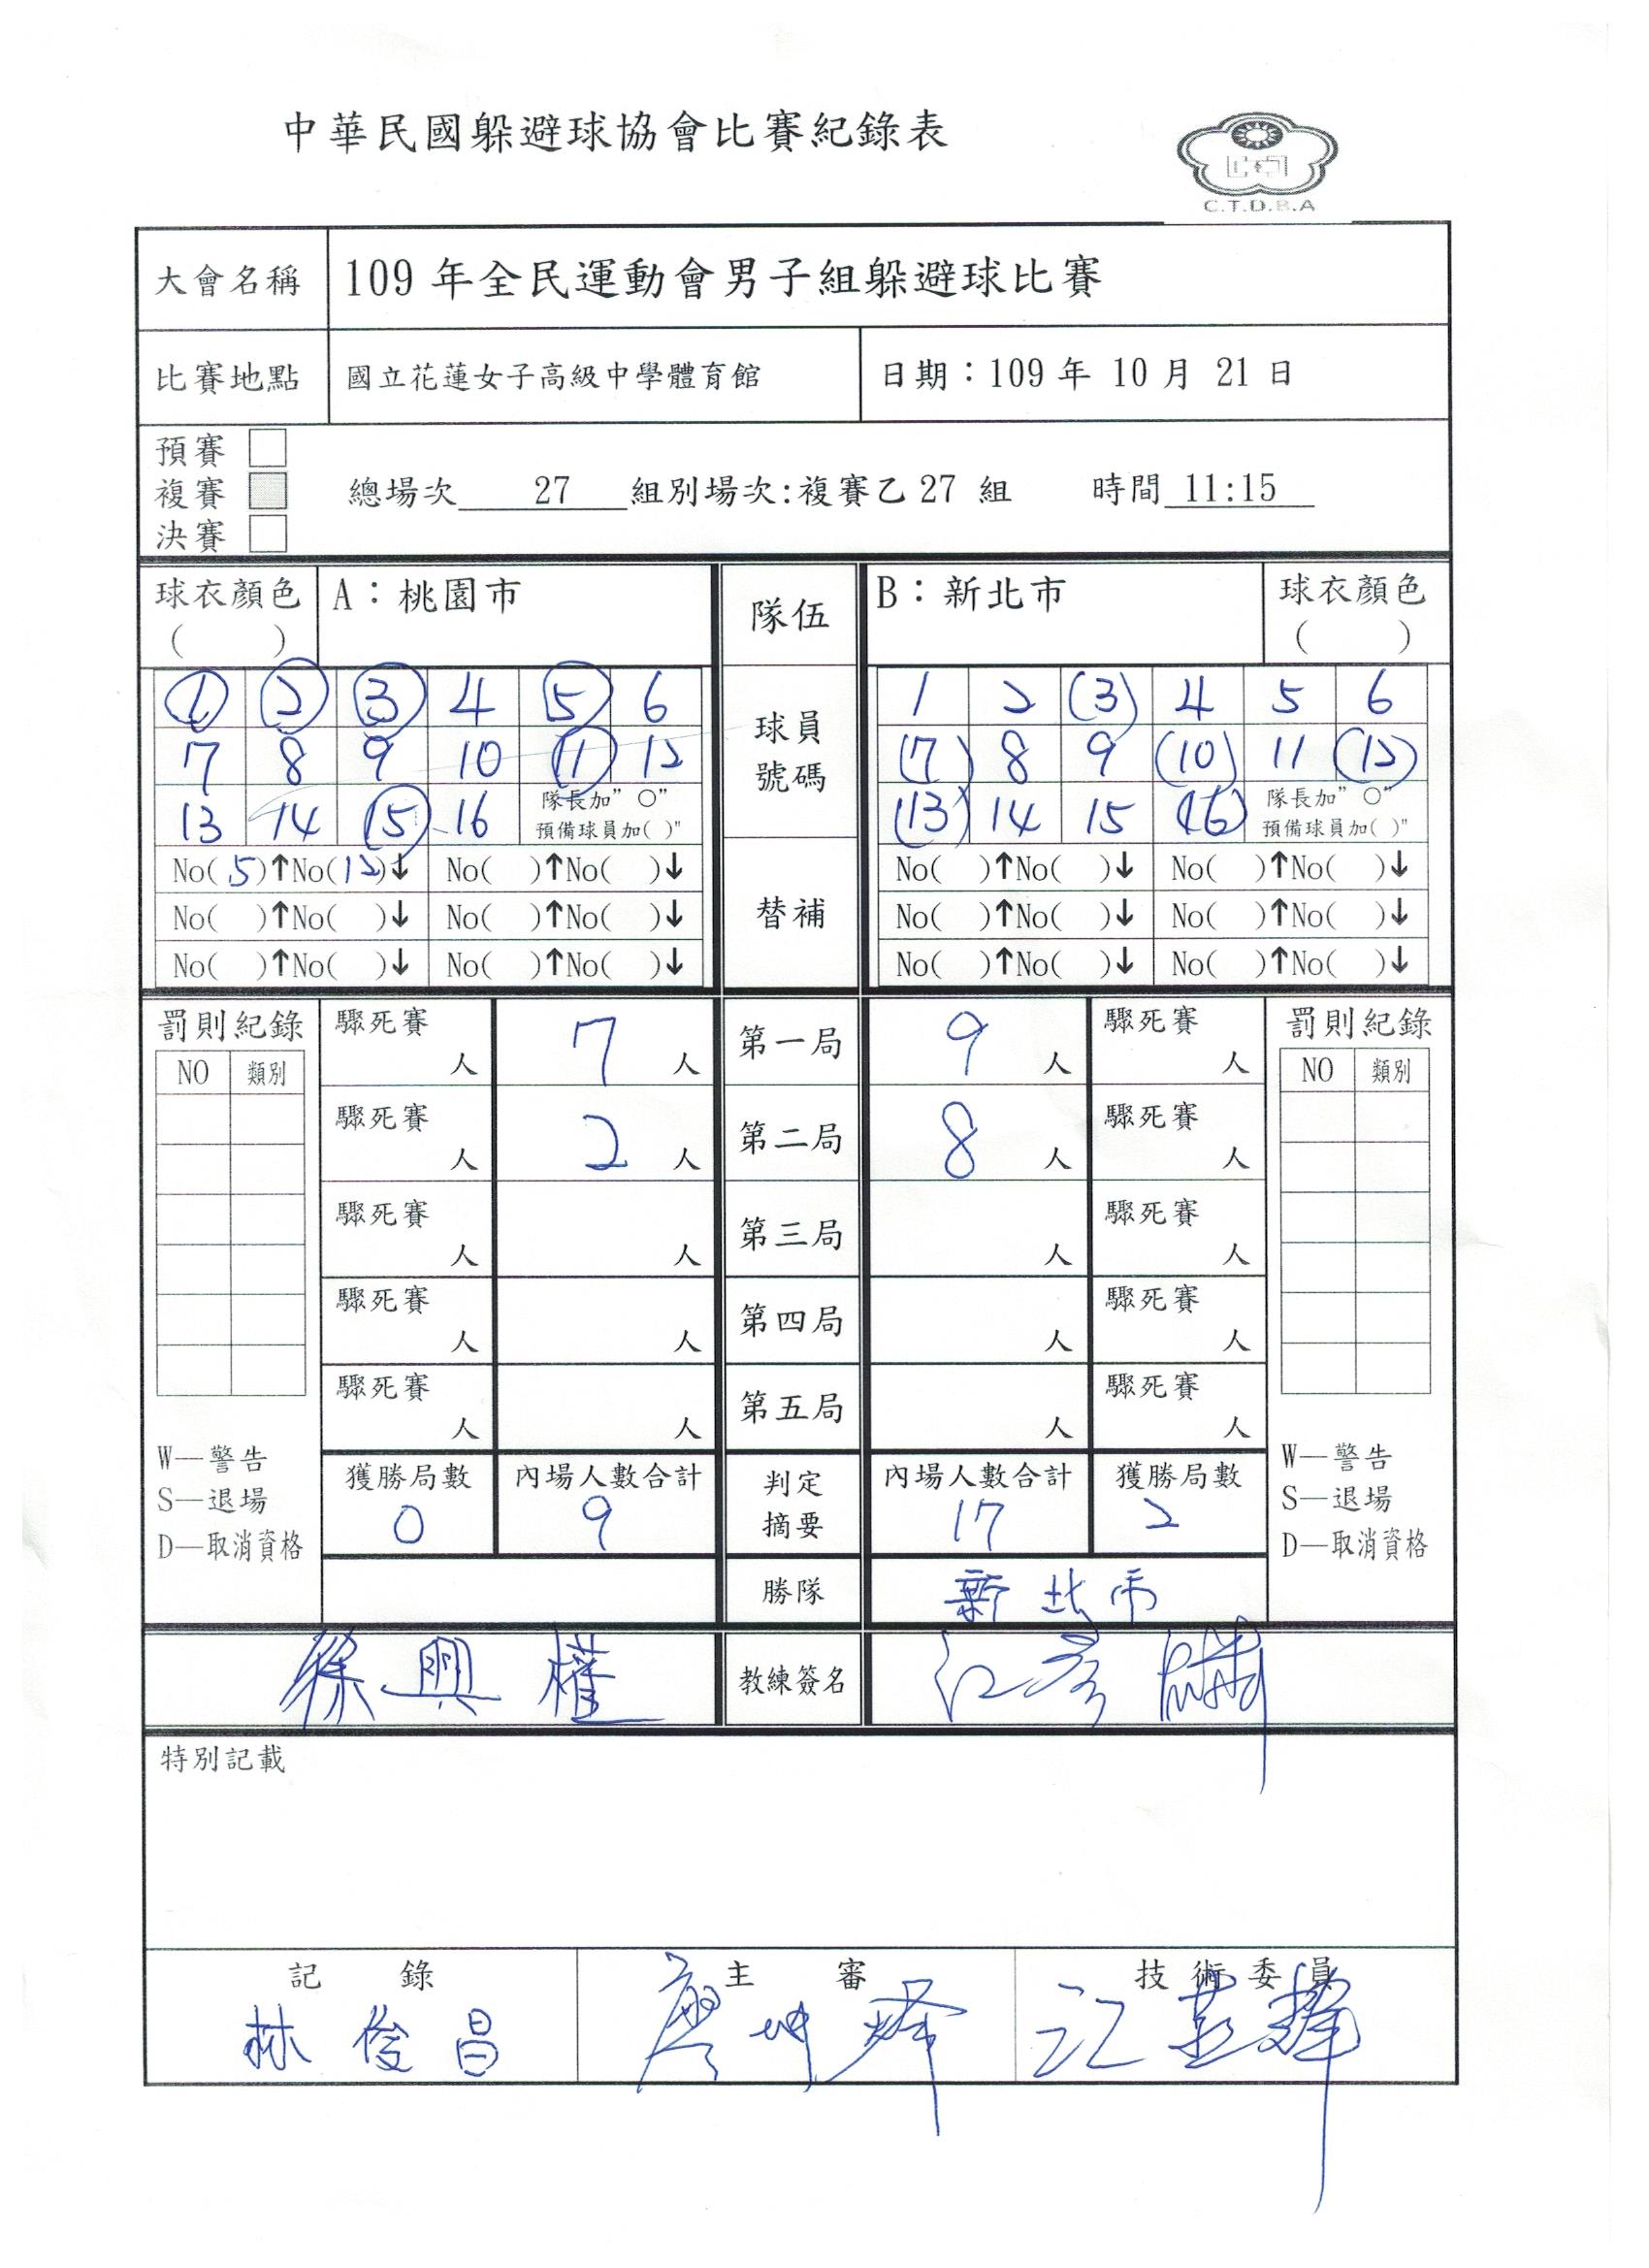 中華民國躲避球協會比賽紀錄表
C.T.D.B.A
大會名稱 109 年全民運動會男子組躲避球比賽
比賽地點 國立花蓮女子高級中學體育館 日期：109 年 10 月 21 日
預賽
複賽 總場次 27 組別場次:複賽乙 27 組 時間 11:15
決賽
球衣顏色 A：桃園市 隊伍 B：新北市 球衣顏色
( ) ( )
1 2 3 4 5 6 球員 1 2 (3) 4 5 6
7 8 9 10 11 12 號碼 (7) 8 9 (10) 11 (12)
13 14 15 16 隊長加" O" (13) 14 15 (16) 隊長加" O"
預備球員加( )" 預備球員加( )"
No(5)↑No(12)↓ No( )↑No( )↓ No( )↑No( )↓ No( )↑No( )↓
No( )↑No( )↓ No( )↑No( )↓ 替補 No( )↑No( )↓ No( )↑No( )↓
No( )↑No( )↓ No( )↑No( )↓ No( )↑No( )↓ No( )↑No( )↓
罰則紀錄 驟死賽 人 7 人 第一局 9 人 驟死賽 人 罰則紀錄
NO 類別 NO 類別
驟死賽 人 2 人 第二局 8 人 驟死賽 人
驟死賽 人 人 第三局 人 驟死賽 人
驟死賽 人 人 第四局 人 驟死賽 人
驟死賽 人 人 第五局 人 驟死賽 人
W—警告 W—警告
S—退場 S—退場
D—取消資格 D—取消資格
獲勝局數 內場人數合計 判定 內場人數合計 獲勝局數
0 9 摘要 17 2
勝隊 新北市
徐興權 教練簽名 江彥
特別記載
記 錄 主 審 技術委員
林俊昌 廖坤 江